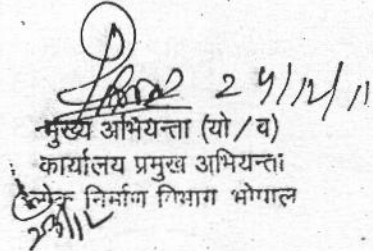 24/12/11
मुख्य अभियन्ता (यो / व)
कार्यालय प्रमुख अभियन्ता
लोक निर्माण विभाग भोपाल